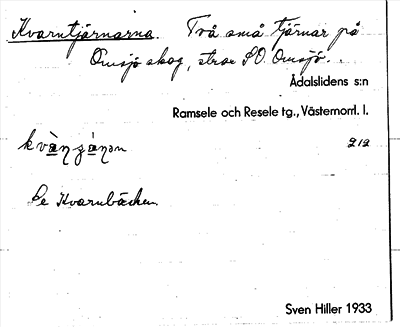 Kvarntjärnarna. Två små tjärnar på
Omsjö skog, strax SO Omsjö.
Ådalslidens s:n
Ramsele och Resele tg., Västernorrl. l.
212
Se Kvarnbäcken
Sven Hiller 1933